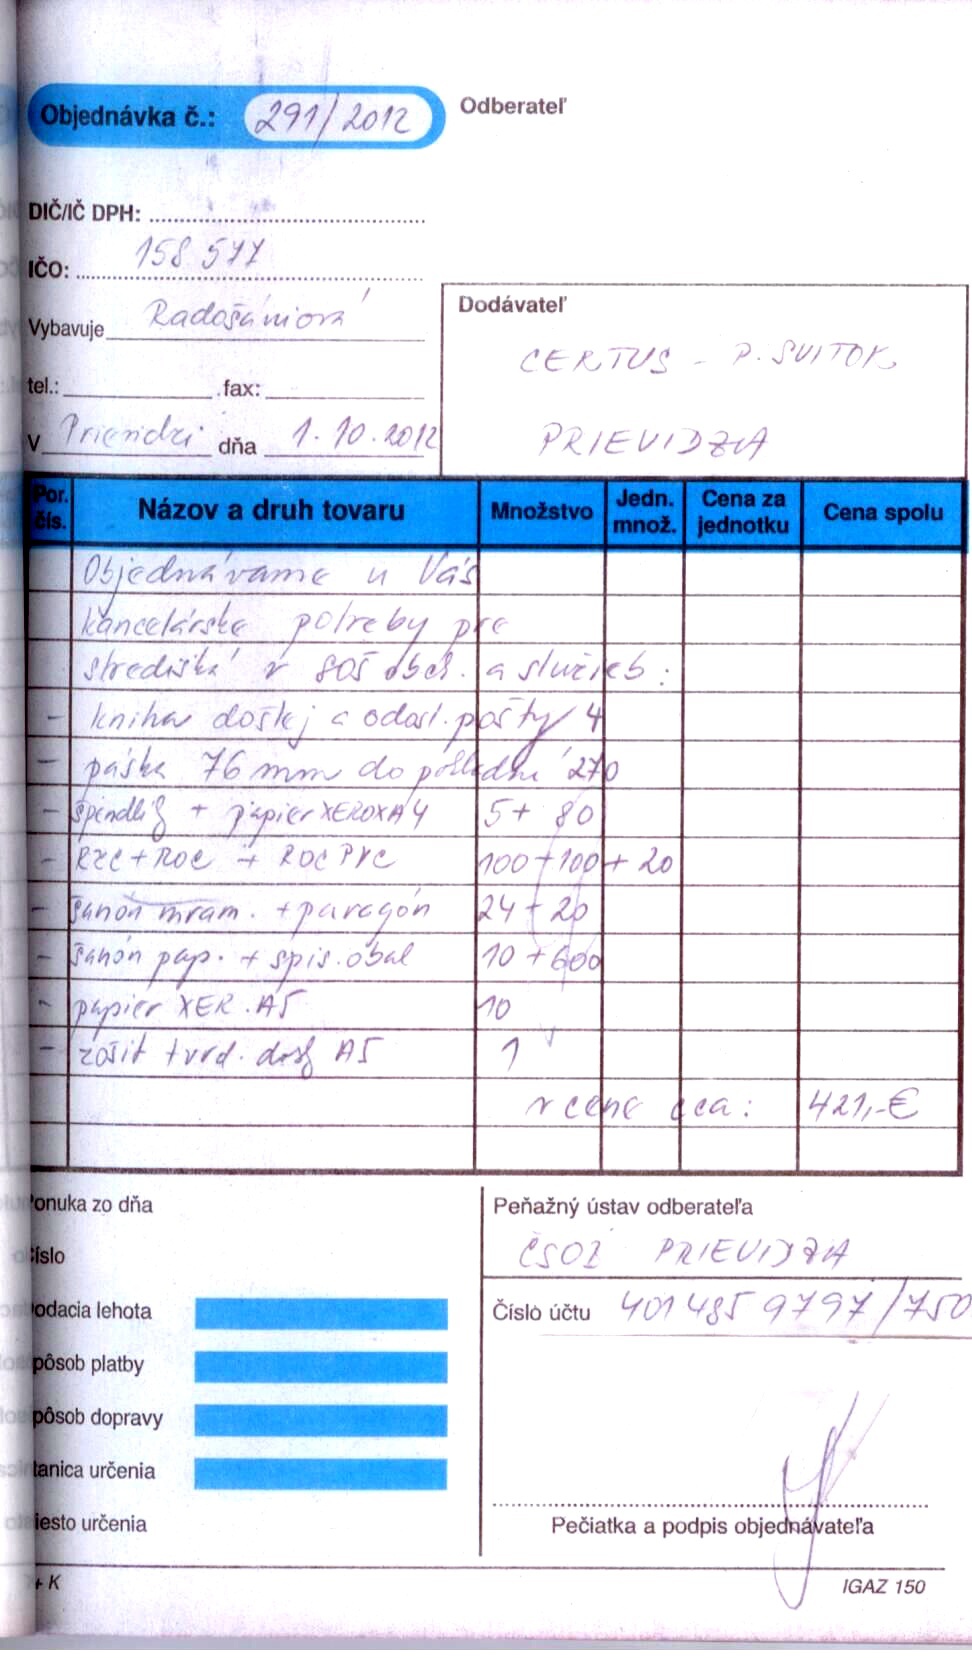 Objednávka č.: 291/2012
Odberateľ
DIČ/IČ DPH:
IČO: 158 577
Vybavuje Radošániová
tel.: fax:
V Prievidzi dňa 1.10.2012
Dodávateľ
CERTUS - P. SVITOK
PRIEVIDZA
Por. čís. Názov a druh tovaru Množstvo Jedn. množ. Cena za jednotku Cena spolu
Objednávame u Vás
kancelárske potreby pre
strediská v SOŠ obch. a služieb:
- kniha došlej a odosl. pošty 4
- páska 76 mm do 270
- + papier XEROX A4 5 + 80
- RZC + ROC + ROC PVC 100 + 100 + 20
- šanón mram. + paragón 24 + 20
- šanón pap. + spis. obal 10 + 600
- papier XER. A5 10
- zošit tvrd. dosk A5 1
v cene cca: 421,-€
onuka zo dňa
íslo
odacia lehota
pôsob platby
pôsob dopravy
tanica určenia
iesto určenia
Peňažný ústav odberateľa
PRIEVIDZA
Číslo účtu 401 485 9797/750
Pečiatka a podpis objednávateľa
+ K
IGAZ 150